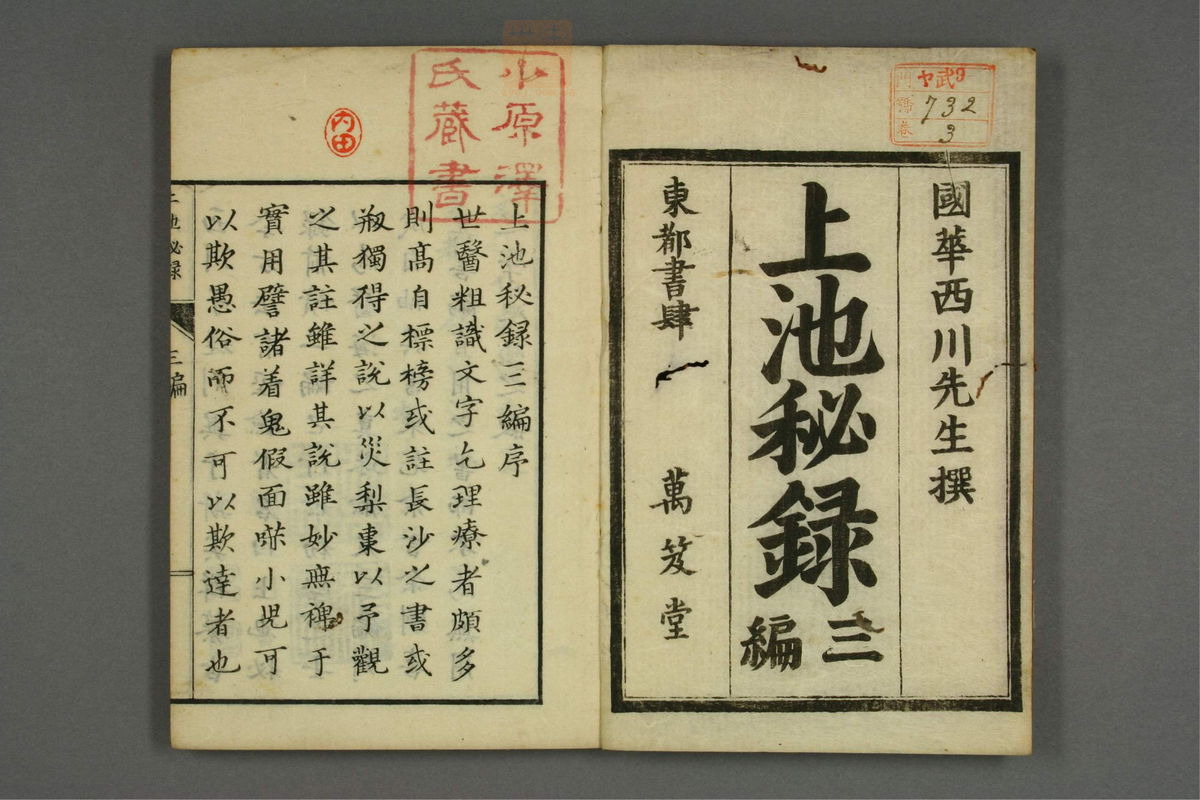 國華西川先生撰
上池秘録
三編
東都書肆 萬笈堂
ヤ武9
門
號
卷
732
3
小原澤
氏藏書
内田
上池秘録三編序
世醫粗識文字乞理療者頗多
則髙自標榜或註長沙之書或
剏獨得之說以災梨棗以予觀
之其註雖詳其說雖妙無裨于
實用譬諸着鬼假面嚇小児可
以欺愚俗而不可以欺達者也
上池秘録
三編